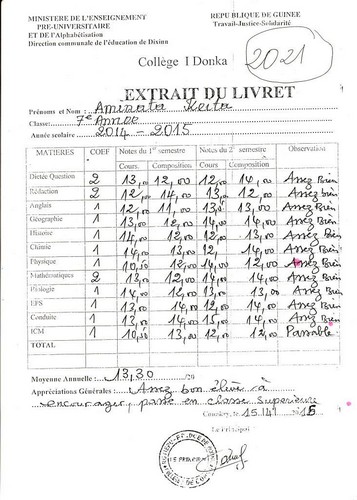 MINISTERE DE L'ENSEIGNEMENT
PRE-UNIVERSITAIRE
ET DE l'Alphabétisation
Direction communale de l'éducation de Dixinn
REPUBLIQUE DE GUINEE
Travail-Justice-Solidarité
2021
Collège I Donka
EXTRAIT DU LIVRET
Prénoms et Nom : Aminata Keita
Classe: 7e Année
Année scolaire 2014 - 2015
MATIERES COEF Notes du 1er semestre Notes du 2e semestre Observation
Cours Composition Cours Composition
Dictée Question 2 13,00 12,00 12,00 14,00 Assez Bien
Rédaction 2 12,00 14,00 13,00 12,00 Assez bien
Anglais 1 12,00 11,00 13,00 13,00 Assez Bien
Géographie 1 13,00 12,00 14,00 14,00 Assez Bien
Histoire 1 14,00 12,00 12,00 13,00 Assez Bien
Chimie 1 14,00 13,00 12, 14,00 Assez Bien
Physique 1 10,50 12,00 14,00 12,00 Assez Bien
Mathématiques 2 13,00 12,00 14,00 14,00 Assez Bien
Biologie 1 14,00 12,00 13,00 13,00 Assez Bien
EPS 1 13,00 14,00 12,00 14,00 Assez Bien
Conduite 1 13,00 14,00 15,00 14,00 Assez Bien
ICM 1 10,50 13,00 12,00 12,00 Passable
TOTAL
Moyenne Annuelle : 13,30 /20
Appréciations Générales : Assez bon élève à
encourager, passe en classe Supérieure
Conakry, le 15
Le Principal
LE PRINCIPAL